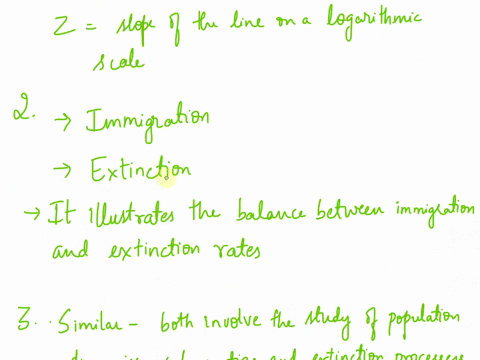 Z = slope of the line on a logarithmic
scale
2. → Immigration
→ Extinction
→ It illustrates the balance between immigration
and extinction rates
3. Similar - both involve the study of population
and extinction processes